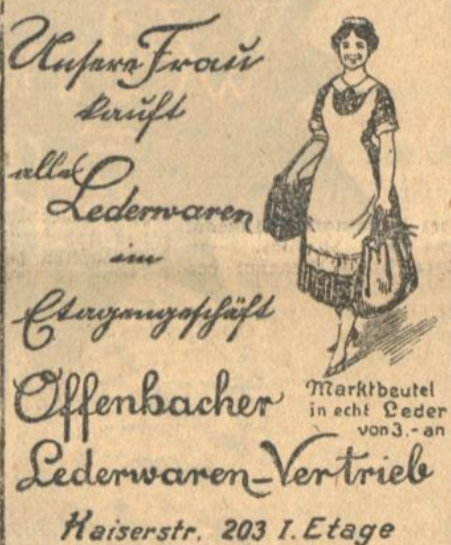 Unsere Frau
kauft
alle Lederwaren
im
Etagengeschäft
Offenbacher
Marktbeutel
in echt Leder
von 3.- an
Lederwaren-Vertrieb
Kaiserstr. 203 I. Etage